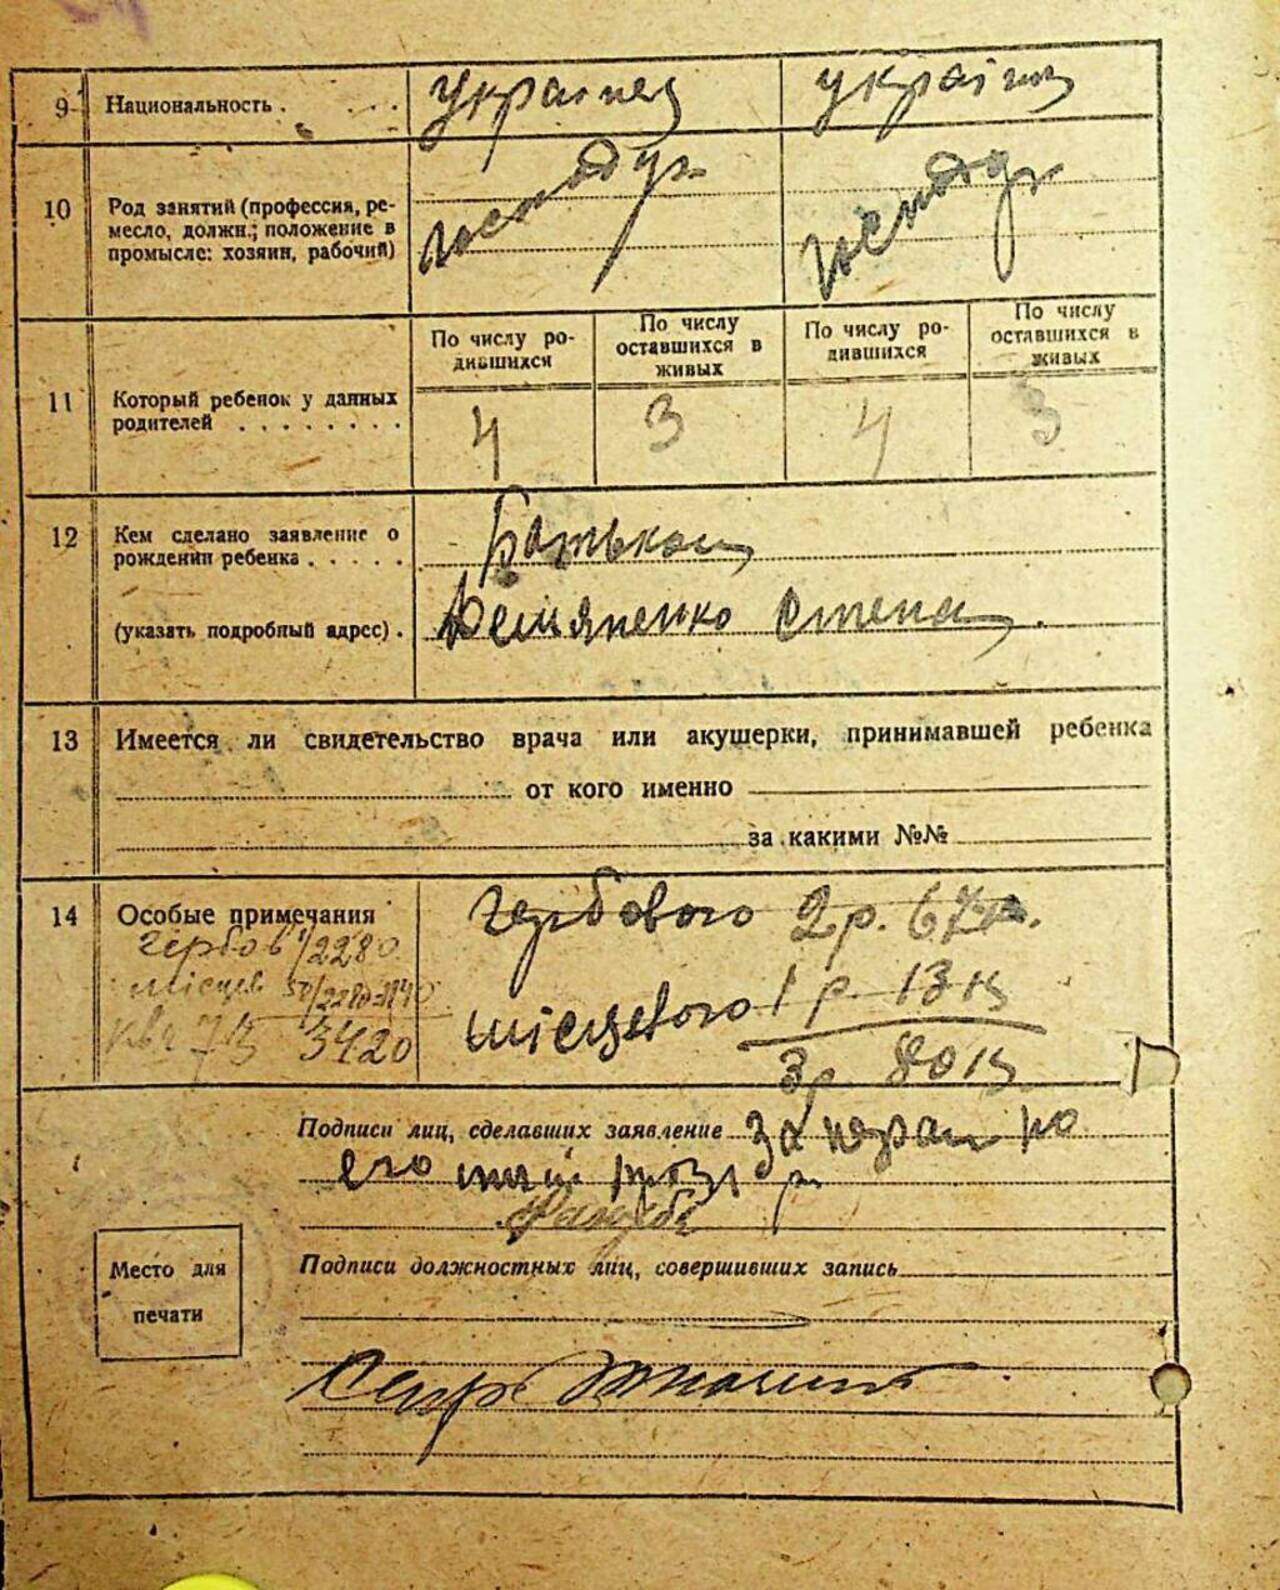 9 Национальность . . . . . украінец украін
10 Род занятий (профессия, ре-
месло, должн.; положение в
промысле: хозяин, рабочий)
По числу ро-
дившихся
По числу
оставшихся в
живых
По числу ро-
дившихся
По числу
оставшихся в
живых
11 Который ребенок у данных
родителей . . . . . . . .
4 3 4 3
12 Кем сделано заявление о
рождении ребенка . . . . .
Батьком
(указать подробный адрес) .
Демяненко Степан
13 Имеется ли свидетельство врача или акушерки, принимавшей ребенка
от кого именно
за какими №№
14 Особые примечания
гербового 2 р. 67 к.
гербов 1/2280
місцев 50/2280-1140
місцевого 1 р 13 к
кв 3420
3 р 80 к
Подписи лиц, сделавших заявление
его
Подписи должностных лиц, совершивших запись
Место для
печати